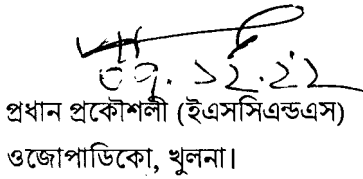 ০৭.১২.২২
প্রধান প্রকৌশলী (ইএসসিএন্ডএস)
ওজোপাডিকো, খুলনা।